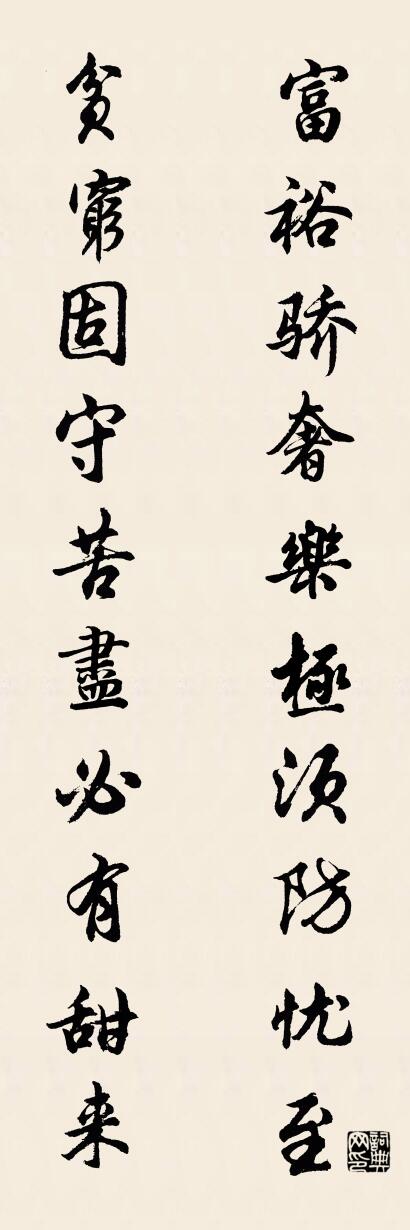 富裕骄奢樂極須防忧至
貧窮固守苦盡必有甜来
詞典网印